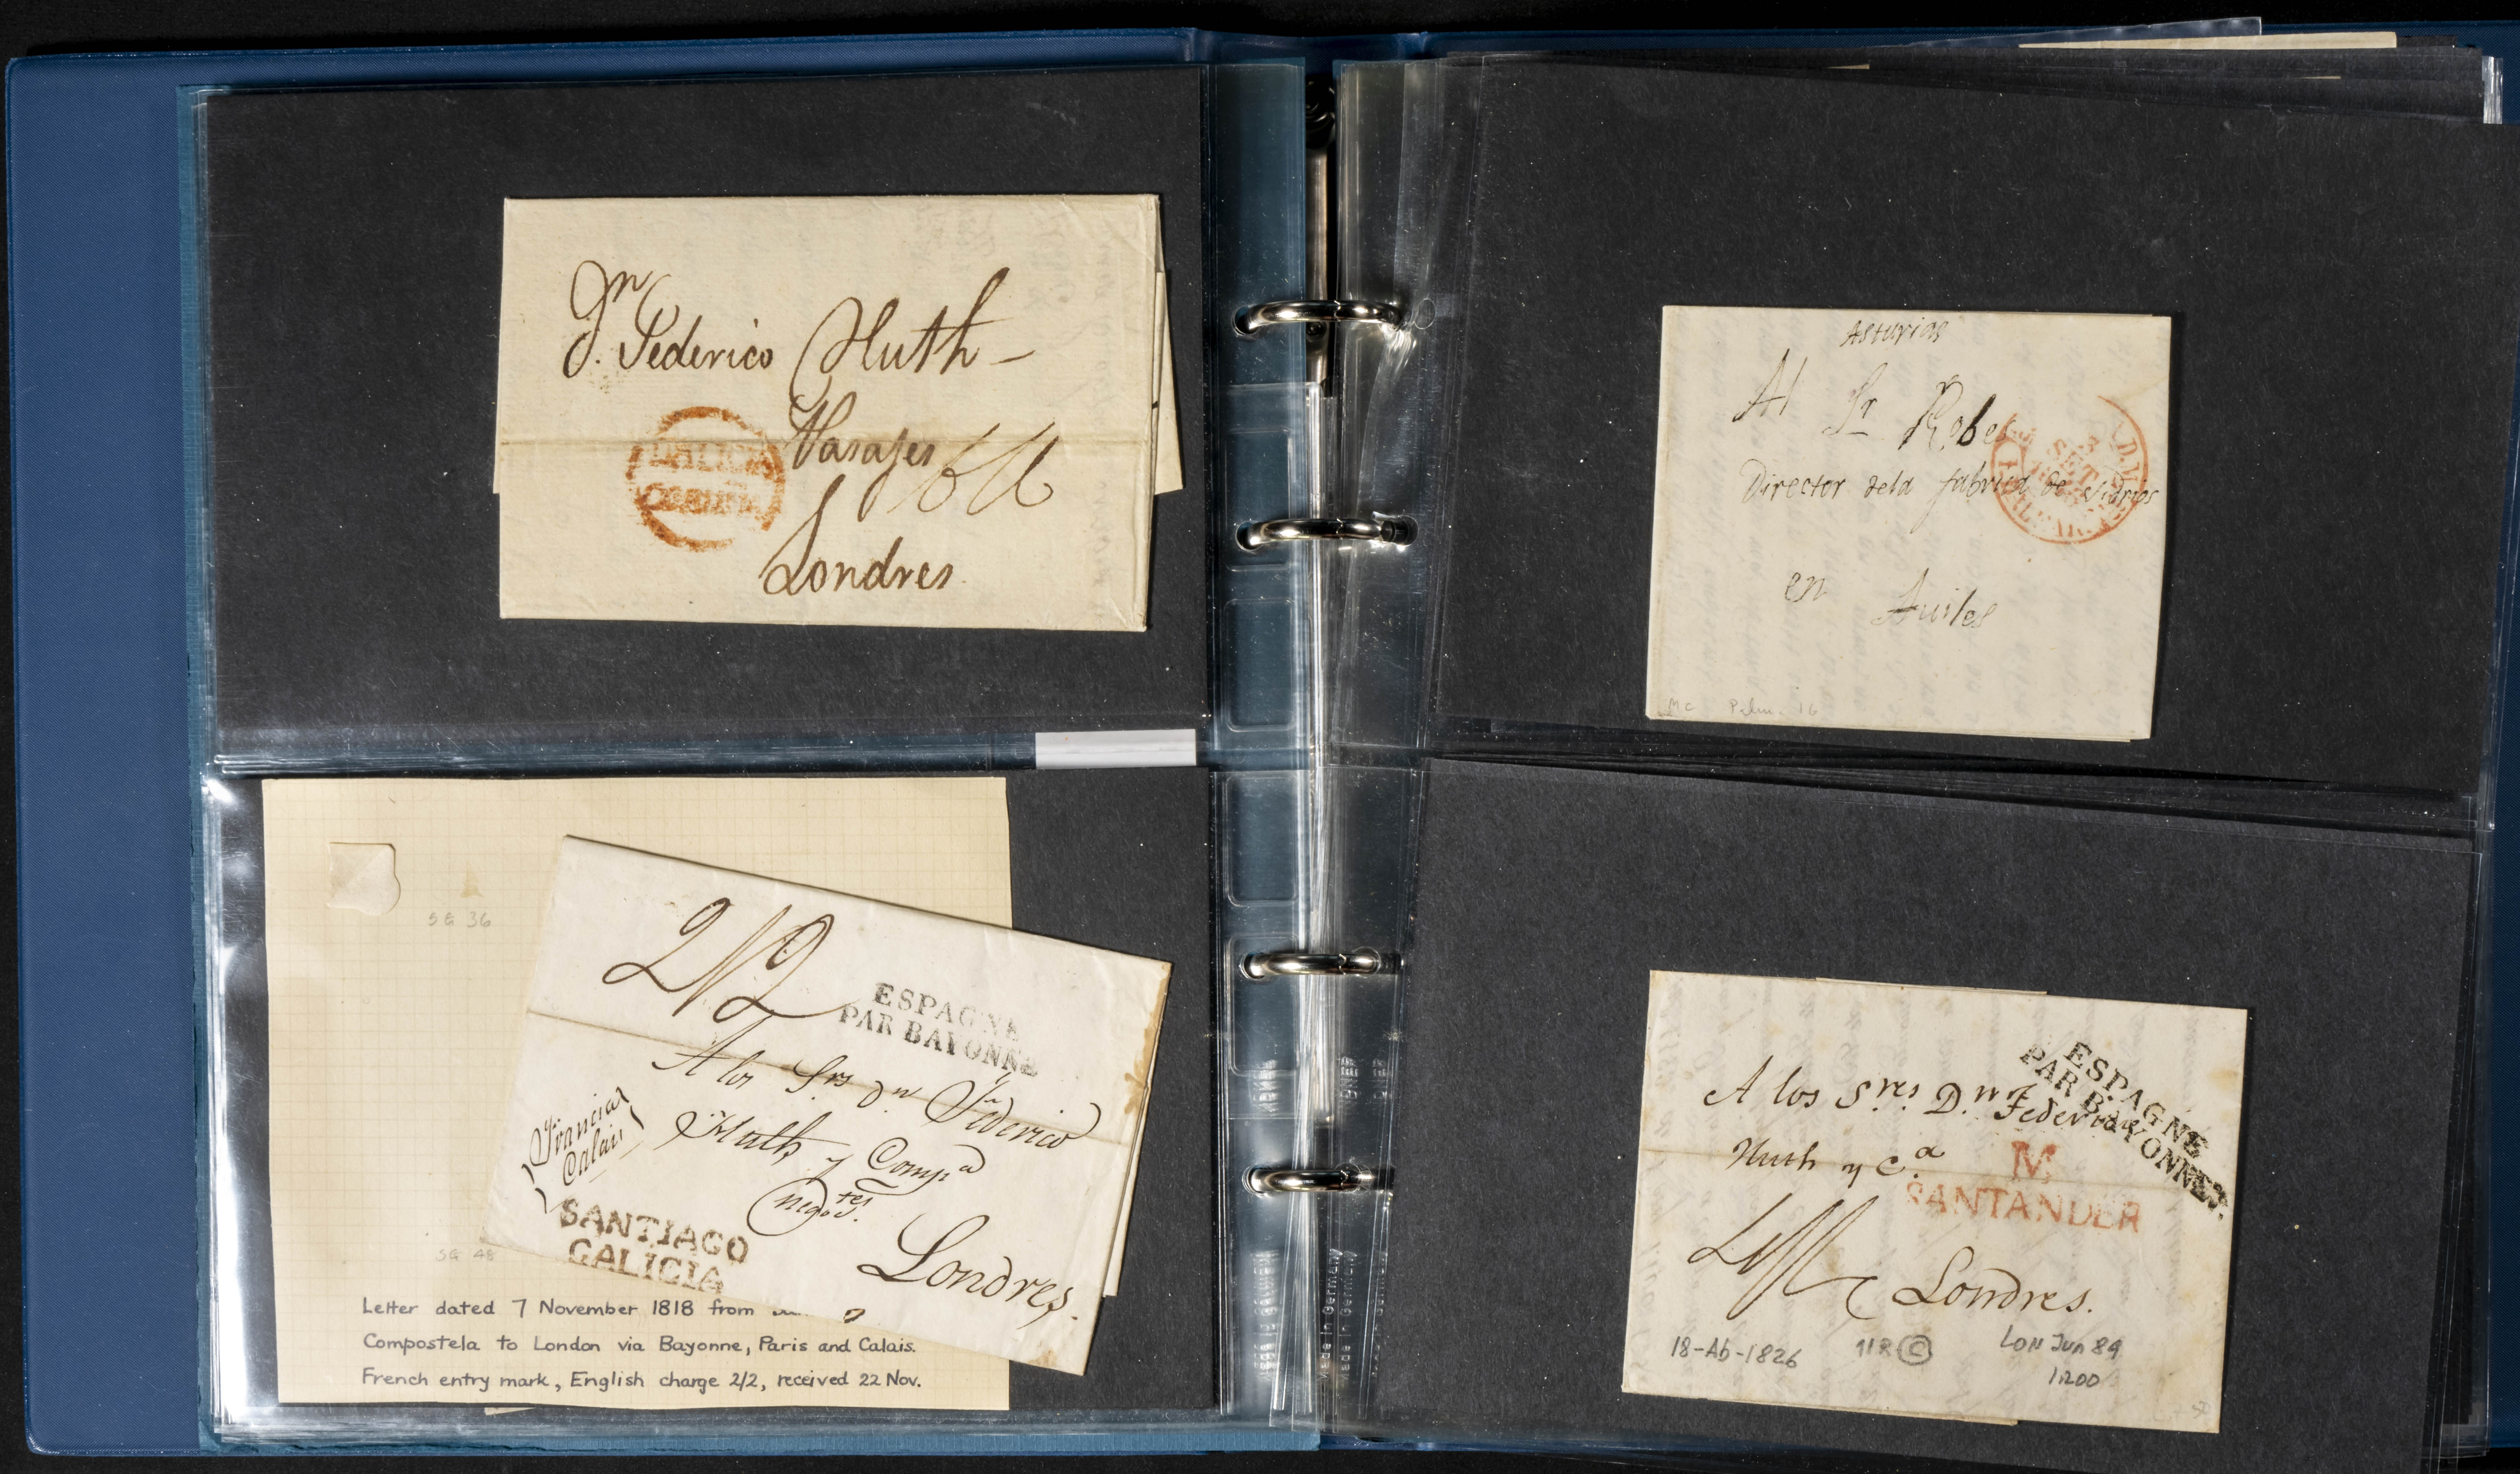 Dn
J. Federico Huth -
Pasajes
GALICIA
CORUÑA
Londres
SG 36
2/2
ESPAGNE
PAR BAYONNE
A los Srs Dn Federico
Huth y Compa
negotes.
Francia
Calais
Londres.
SANTIAGO
GALICIA
SG 48
Letter dated 7 November 1818 from
Compostela to London via Bayonne, Paris and Calais.
French entry mark, English charge 2/2, received 22 Nov.
Asturias
Al Sr Robe
Director dela fabrica de vidrios
SET
en Aviles
Mc
16
ESPAGNE
PAR BAYONNE.
A los Sres. D.n Federico
Huth y C.a
M
SANTANDER
Londres.
18-Ab-1826 118 C LON JUN 89
1200
Made in Germany